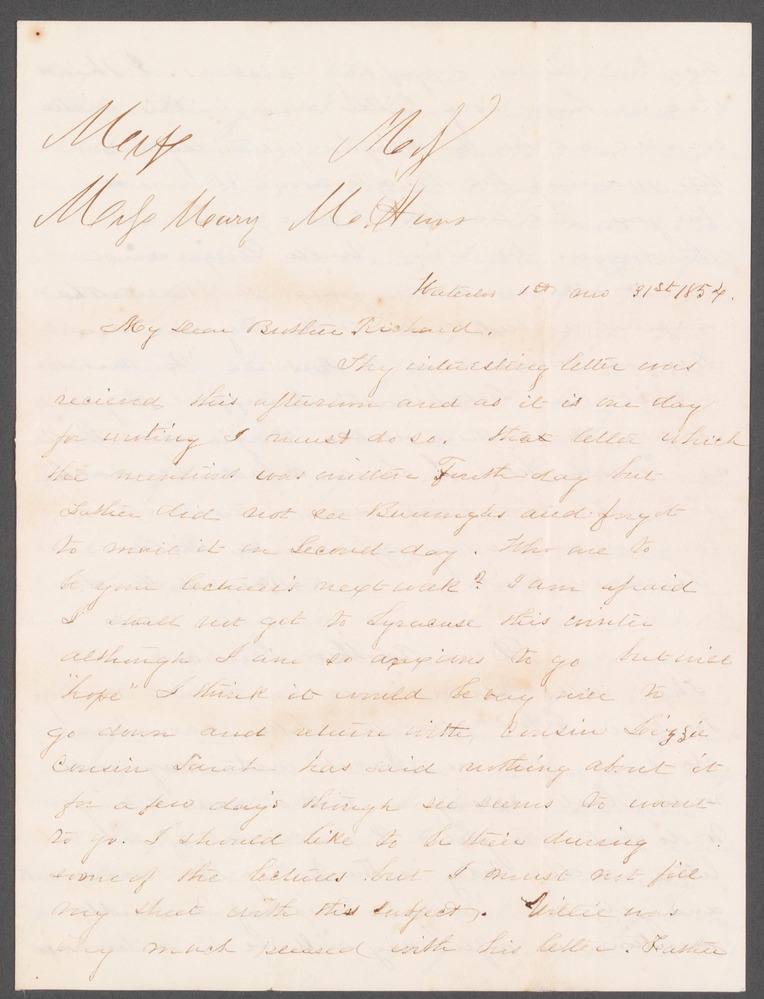 Mary M. Hunt
Waterloo 1st mo 31st 1854.
My Dear Brother Richard.
Thy interesting letter was
recieved this afternoon and as it is our day
for writing I must do so. That letter which
thee mentions was written Fourth-day but
Father did not see Burroughs and forgot
to mail it on Second-day. Who are to
be your lecturers next week? I am afraid
I shall not get to Syracuse this winter
although I am so anxious to go but will
"hope" I think it would be very nice to
go down and return with, Cousin Lizzie
Cousin Sarah has said nothing about it
for a few days though see seems to want
to go. I should like to be there during
some of the lectures but I must not fill
my sheet with this subject. Willie was
very much pleased with his letter. Father